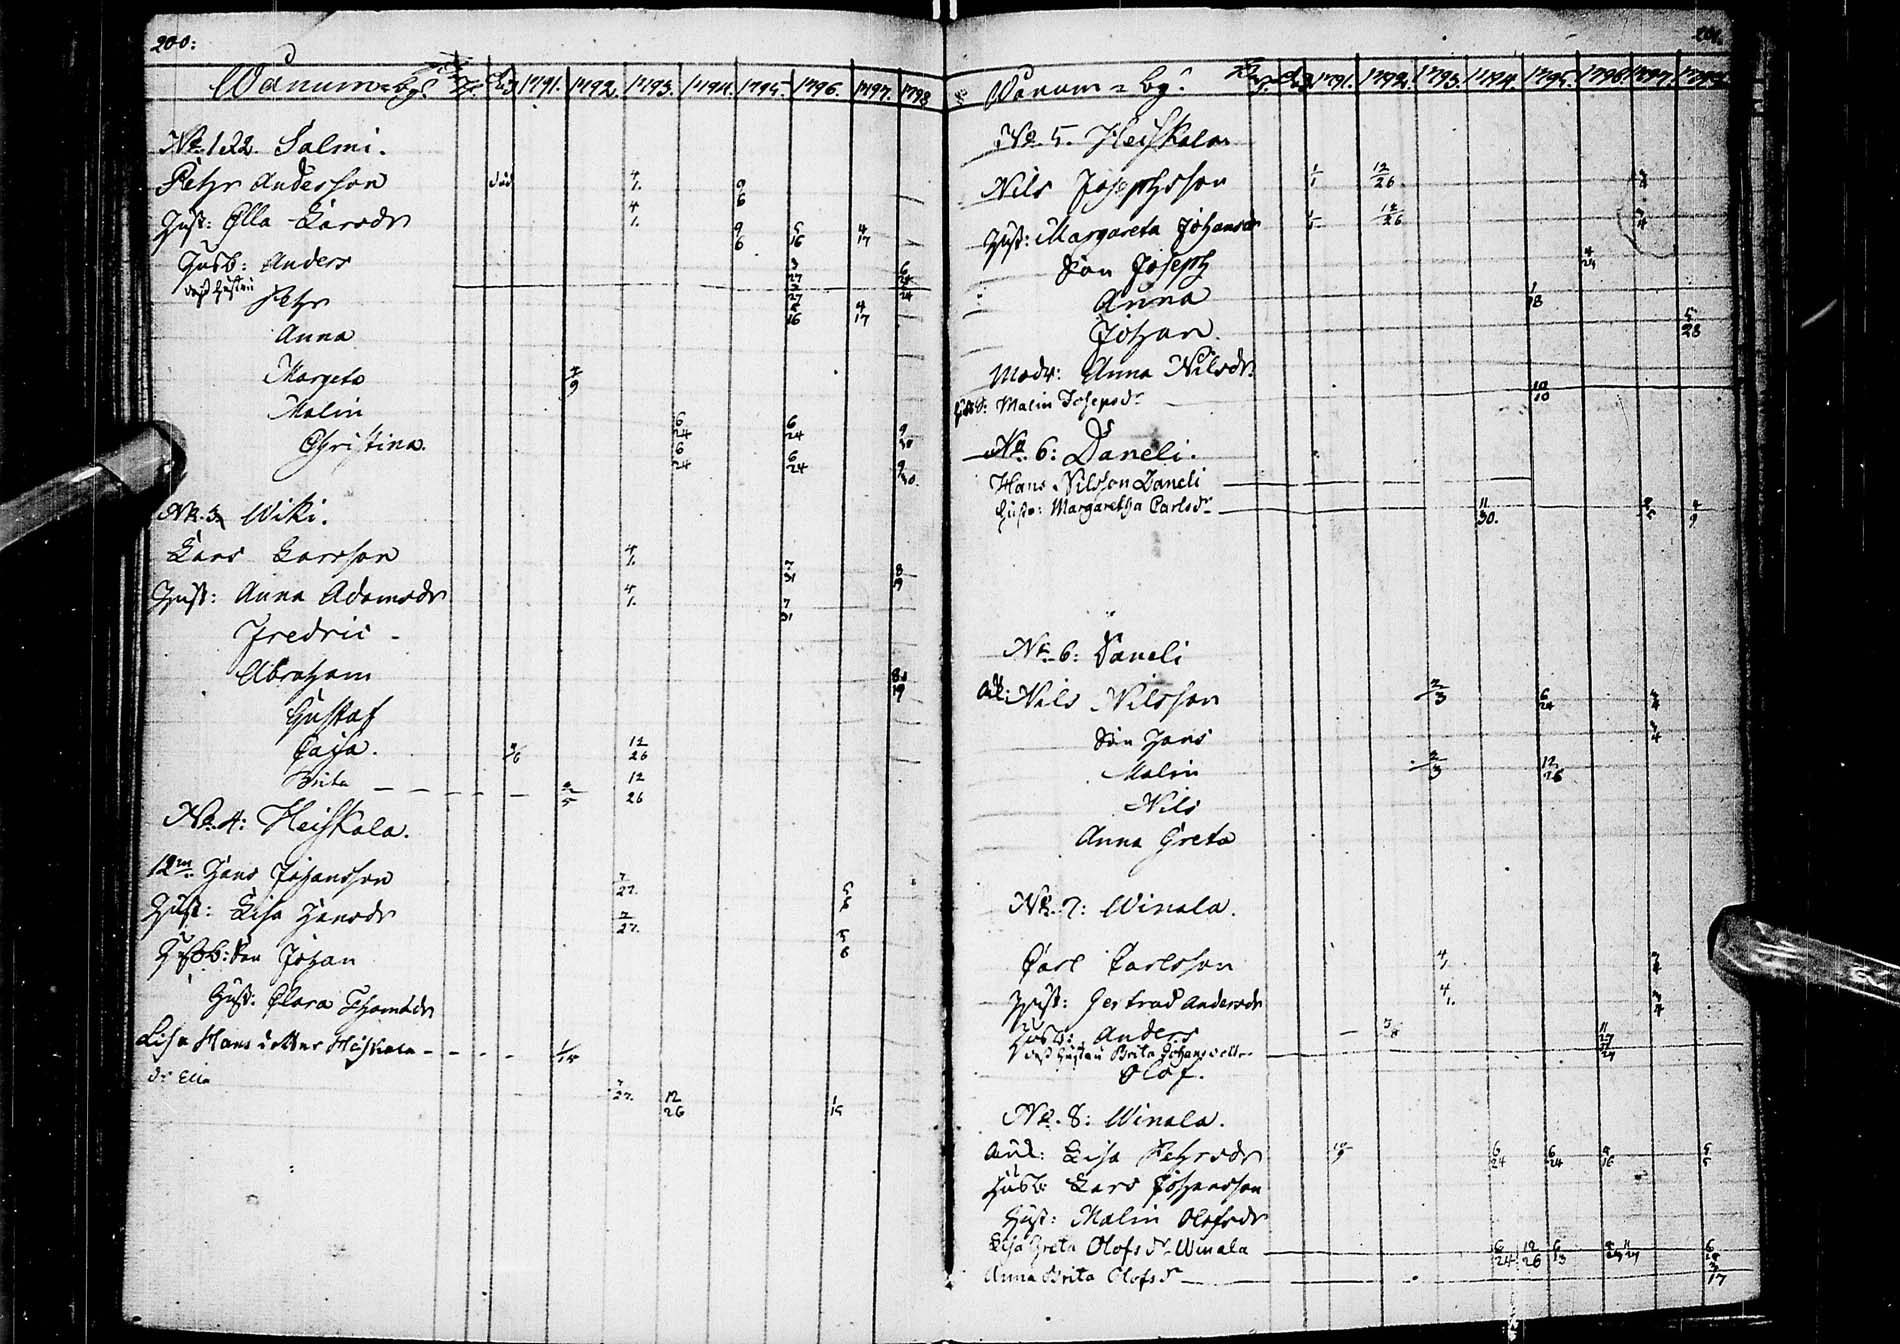 200:
Wanum=by: 1791. 1792. 1793. 1794. 1795. 1796. 1797. 1798
No 1 e 2 Salmi.
Pehr Andersson 4/1. 9/6
Hust: Ella Larsdr 4/1. 9/6 5/16 4/17
Husb: Anders 3/27 6/24
dess Hustru
Pehr 5/16 4/17
Anna
Margeta 2/9
Malin 6/24 6/24 9/30
Christina. 6/24 6/24 9/30.
No. 3 Wiki.
Lars Larsson 4/1. 7/31 8/19
Hust: Anna Adamsdr 4/1. 7/31
Fredric
Abraham 8/19
Gustaf
Caisa. 12/26
Brita 2/5 12/26
No. 4: Heiskala.
12m. Hans Johansson 7/27.
Hust: Lisa Hansdr 7/27. 5/6
Husb: Son Johan
Hust: Clara Thomædr
Lisa Hans dotter Heiskala
dr Elin 12/26
Wanum=by: 1791. 1792. 1793. 1794. 1795. 1796. 1797.
No. 5. Heiskala
Nils Josephsson 1/1 12/26
Hust: Margareta Johansdr 1/1 12/26
Son Joseph 4/24
Anna 1/18
Johan 5/28
Modr: Anna Nilsdr. 10/10
Malin Josepsdr
No 6: Daneli.
Hans Nilsson Daneli
Hustr: Margaretha Carlsdr 11/30.
No. 6: Daneli
Nils Nilsson 2/3 6/24
Son Hans
Malin 2/3 12/26
Nils
Anna Greta
No. 7: Winala.
Carl Carlsson 4/1
Hust: Gertrud Andersdr 4/1.
Husb: Anders 11/27
dess Hustru Brita Johansdotter
Olof.
No. 8: Winala.
Lisa Pehrsdr 6/24 6/24
Husb: Lars Johansson
Hust: Malin Olofsdr
Lisa Greta Olofsdr Winala 6/24 12/26 6/13
Anna Brita Olofsdr 3/17